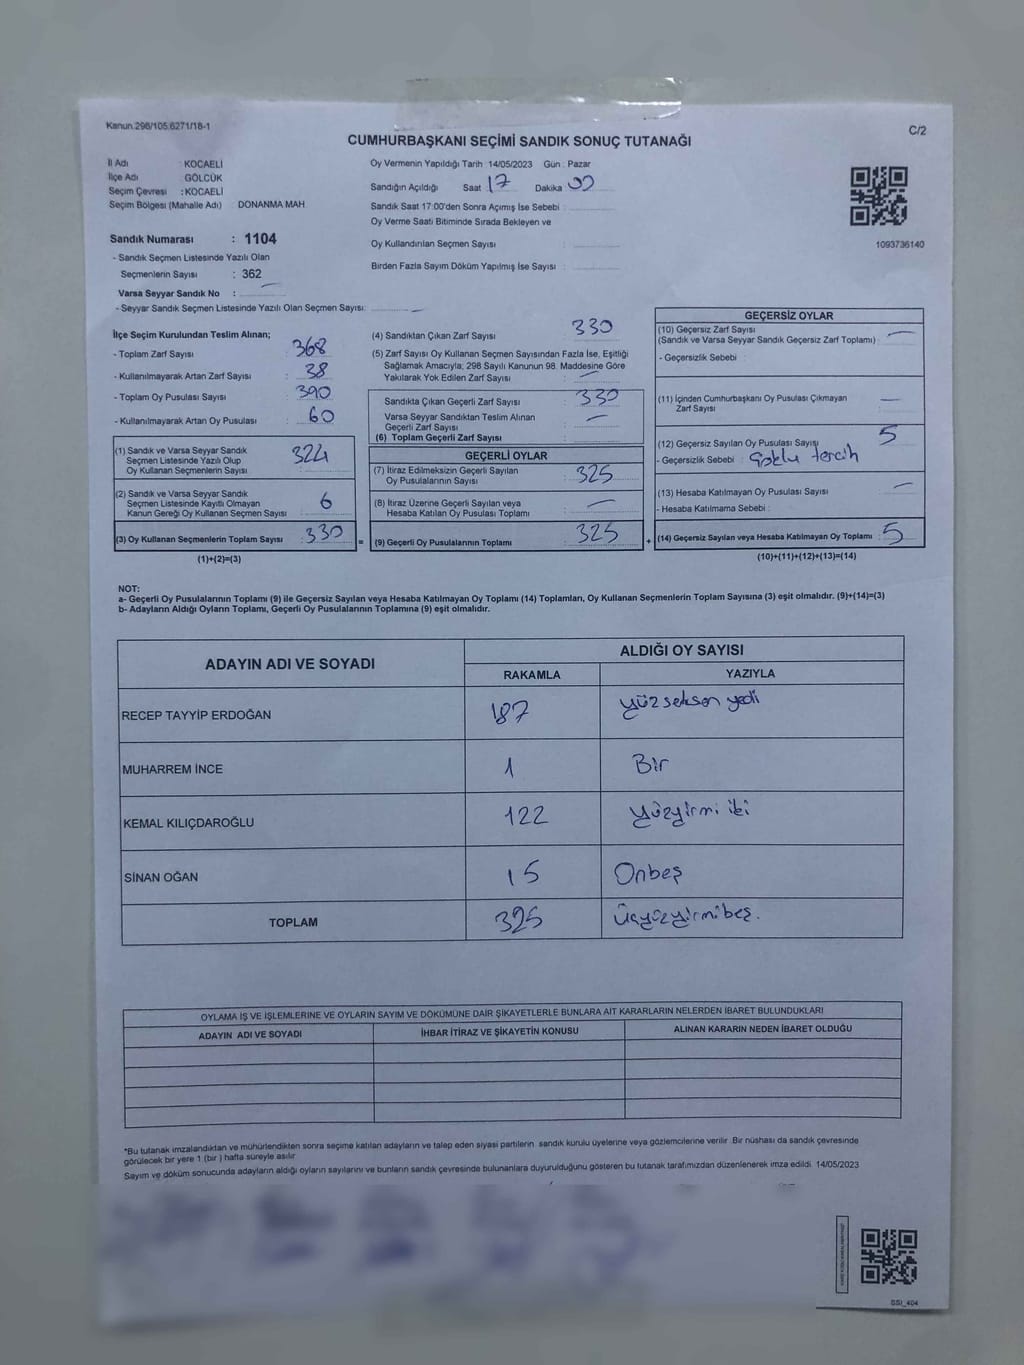 Kanun.298/105.6271/18-1
C/2
CUMHURBAŞKANI SEÇİMİ SANDIK SONUÇ TUTANAĞI
İl Adı : KOCAELİ
İlçe Adı : GÖLCÜK
Seçim Çevresi : KOCAELİ
Seçim Bölgesi (Mahalle Adı) DONANMA MAH
Sandık Numarası : 1104
- Sandık Seçmen Listesinde Yazılı Olan
Seçmenlerin Sayısı : 362
Varsa Seyyar Sandık No : —
- Seyyar Sandık Seçmen Listesinde Yazılı Olan Seçmen Sayısı: —
Oy Vermenin Yapıldığı Tarih :14/05/2023 Gün : Pazar
Sandığın Açıldığı Saat : 17 Dakika 00
Sandık Saat 17:00'den Sonra Açımış İse Sebebi :
Oy Verme Saati Bitiminde Sırada Bekleyen ve
Oy Kullandırılan Seçmen Sayısı :
Birden Fazla Sayım Döküm Yapılmış İse Sayısı :
1093736140
İlçe Seçim Kurulundan Teslim Alınan;
- Toplam Zarf Sayısı : 368
- Kullanılmayarak Artan Zarf Sayısı : 38
- Toplam Oy Pusulası Sayısı : 390
- Kullanılmayarak Artan Oy Pusulası : 60
(1) Sandık ve Varsa Seyyar Sandık
Seçmen Listesinde Yazılı Olup
Oy Kullanan Seçmenlerin Sayısı : 324
(2) Sandık ve Varsa Seyyar Sandık
Seçmen Listesinde Kayıtlı Olmayan
Kanun Gereği Oy Kullanan Seçmen Sayısı : 6
(3) Oy Kullanan Seçmenlerin Toplam Sayısı : 330
(1)+(2)=(3)
(4) Sandıktan Çıkan Zarf Sayısı : 330
(5) Zarf Sayısı Oy Kullanan Seçmen Sayısından Fazla İse, Eşitliği
Sağlamak Amacıyla; 298 Sayılı Kanunun 98. Maddesine Göre
Yakılarak Yok Edilen Zarf Sayısı : —
Sandıkta Çıkan Geçerli Zarf Sayısı : 330
Varsa Seyyar Sandıktan Teslim Alınan
Geçerli Zarf Sayısı : —
(6) Toplam Geçerli Zarf Sayısı :
GEÇERLİ OYLAR
(7) İtiraz Edilmeksizin Geçerli Sayılan
Oy Pusulalarının Sayısı : 325
(8) İtiraz Üzerine Geçerli Sayılan veya
Hesaba Katılan Oy Pusulası Toplamı : —
= (9) Geçerli Oy Pusulalarının Toplamı : 325
GEÇERSİZ OYLAR
(10) Geçersiz Zarf Sayısı
(Sandık ve Varsa Seyyar Sandık Geçersiz Zarf Toplamı) : —
- Geçersizlik Sebebi :
(11) İçinden Cumhurbaşkanı Oy Pusulası Çıkmayan
Zarf Sayısı : —
(12) Geçersiz Sayılan Oy Pusulası Sayısı : 5
- Geçersizlik Sebebi : Çoklu tercih
(13) Hesaba Katılmayan Oy Pusulası Sayısı : —
- Hesaba Katılmama Sebebi :
+ (14) Geçersiz Sayılan veya Hesaba Katılmayan Oy Toplamı : 5
(10)+(11)+(12)+(13)=(14)
NOT:
a- Geçerli Oy Pusulalarının Toplamı (9) ile Geçersiz Sayılan veya Hesaba Katılmayan Oy Toplamı (14) Toplamları, Oy Kullanan Seçmenlerin Toplam Sayısına (3) eşit olmalıdır. (9)+(14)=(3)
b- Adayların Aldığı Oyların Toplamı, Geçerli Oy Pusulalarının Toplamına (9) eşit olmalıdır.
ADAYIN ADI VE SOYADI
ALDIĞI OY SAYISI
RAKAMLA YAZIYLA
RECEP TAYYİP ERDOĞAN 187 yüz seksen yedi
MUHARREM İNCE 1 Bir
KEMAL KILIÇDAROĞLU 122 yüzyirmi iki
SİNAN OĞAN 15 Onbeş
TOPLAM 325 Üçyüzyirmibeş.
OYLAMA İŞ VE İŞLEMLERİNE VE OYLARIN SAYIM VE DÖKÜMÜNE DAİR ŞİKAYETLERLE BUNLARA AİT KARARLARIN NELERDEN İBARET BULUNDUKLARI
ADAYIN ADI VE SOYADI İHBAR İTİRAZ VE ŞİKAYETİN KONUSU ALINAN KARARIN NEDEN İBARET OLDUĞU
*Bu tutanak imzalandıktan ve mühürlendikten sonra seçime katılan adayların ve talep eden siyasi partilerin sandık kurulu üyelerine veya gözlemcilerine verilir. Bir nüshası da sandık çevresinde
görülecek bir yere 1 (bir ) hafta süreyle asılır
Sayım ve döküm sonucunda adayların aldığı oyların sayılarını ve bunların sandık çevresinde bulunanlara duyurulduğunu gösteren bu tutanak tarafımızdan düzenlenerek imza edildi. 14/05/2023
SSI_404